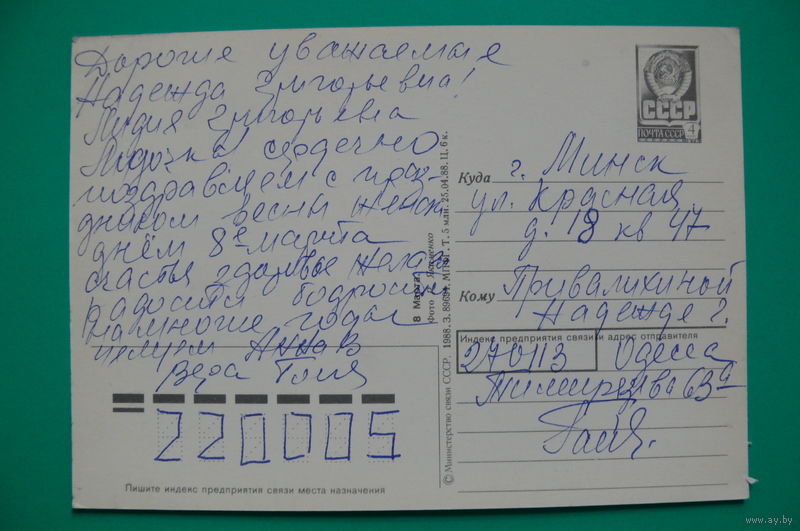 Дорогие уважаемые
Надежда Григорьевна!
Лидия Григорьевна
Лидочка сердечно
поздравляем с праз-
дником весны женск
днём 8е марта
счастья здоровье
радости бодрости
на многие годы
целуем Анна В
Вера Галя
220005
Пишите индекс предприятия связи места назначения
8 Марта
Фото
© Министерство связи СССР. 1988. З. 89694. МПФГ. Т. 5 млн. 25.04.88. Ц. 6 к.
СССР
ПОЧТА СССР 4
Куда г. Минск
ул. Красная
д. 18 кв 47
Кому Привалихиной
Надежде Г.
Индекс предприятия связи и адрес отправителя
270113 Одесса
Тимирязева 63а
Галя.
www.ay.by